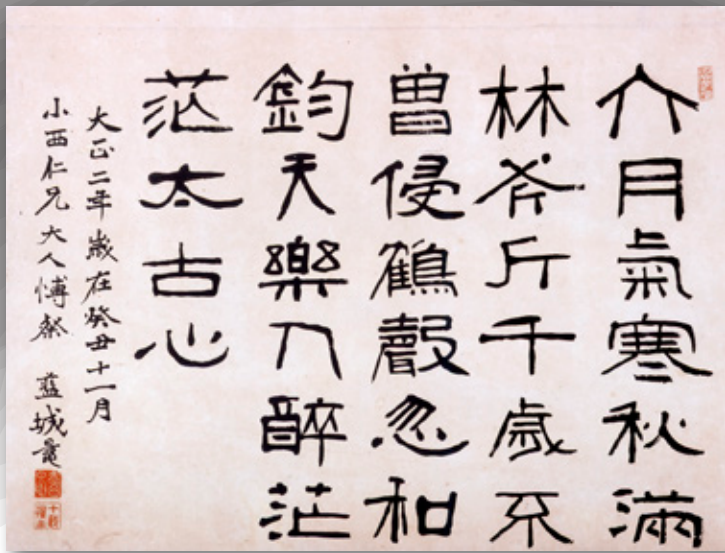 六月氣寒秋滿
林斧斤千歲不
曾侵鶴聲忽和
鈞天樂入醉茫
茫太古心
大正二年歲在癸丑十一月
小西仁兄大人愽粲 藍城